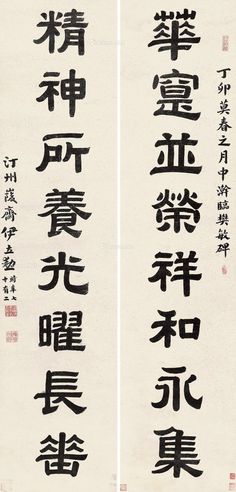 華寔並榮祥和永集
丁卯莫春之月中澣臨樊敏碑
精神所養光曜長
汀州齋伊立勳時年七
十有二